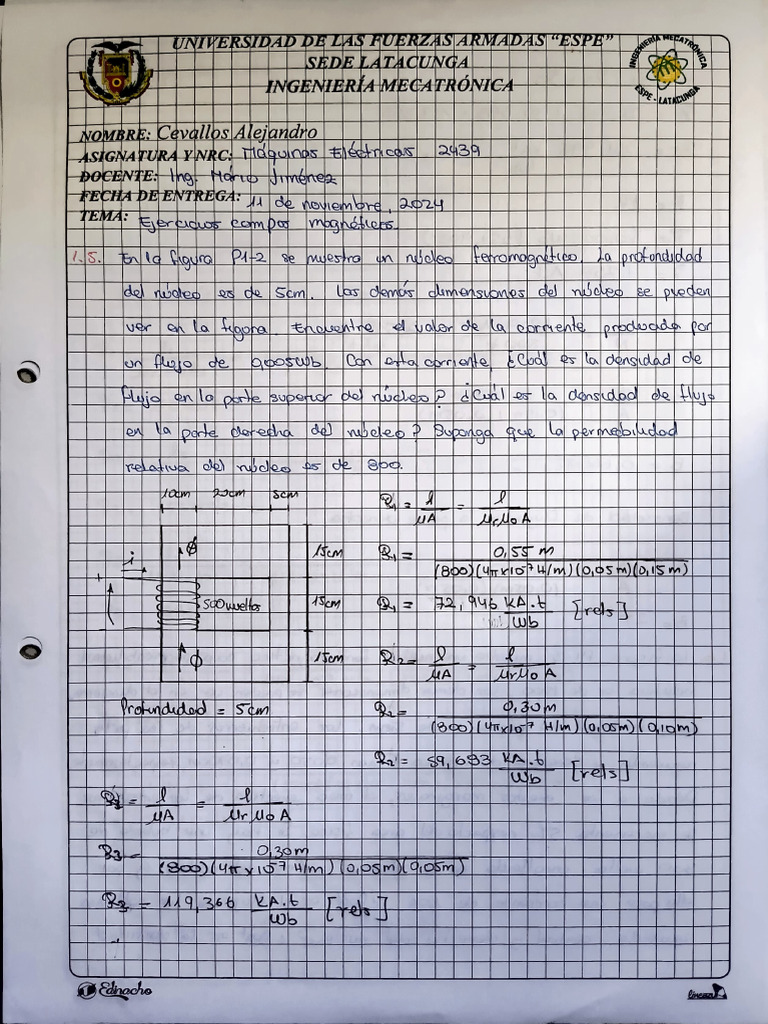 UNIVERSIDAD DE LAS FUERZAS ARMADAS "ESPE"
SEDE LATACUNGA
INGENIERÍA MECATRÓNICA
INGENIERÍA MECATRÓNICA
ESPE - LATACUNGA
NOMBRE: Cevallos Alejandro
ASIGNATURA Y NRC: Máquinas Eléctricas 2439
DOCENTE: Ing. Mário Jiménez
FECHA DE ENTREGA: 11 de noviembre, 2024
TEMA: Ejercicios campos magnéticos.
1.5. En la figura P1-2 se muestra un núcleo ferromagnético. La profundidad
del núcleo es de 5cm. Las demás dimensiones del núcleo se pueden
ver en la figura. Encuentre el valor de la corriente producida por
un flujo de 0,005Wb. Con esta corriente, ¿Cuál es la densidad de
flujo en la parte superior del núcleo? ¿Cuál es la densidad de flujo
en la parte derecha del núcleo? Suponga que la permeabilidad
relativa del núcleo es de 800.
10cm 20cm 5cm
R1 = l/μA = l/μrμ0A
φ
15cm
i
+
500 vueltas
15cm
φ
15cm
R1 = 0,55 m / (800)(4π×10⁻⁷ H/m)(0,05m)(0,15m)
R1 = 72,946 KA.t/Wb [rels]
R2 = l/μA = l/μrμ0A
Profundidad = 5cm
R2 = 0,30m / (800)(4π×10⁻⁷ H/m)(0,05m)(0,10m)
R2 = 59,683 KA.t/Wb [rels]
R3 = l/μA = l/μrμ0A
R3 = 0,30m / (800)(4π×10⁻⁷ H/m)(0,05m)(0,05m)
R3 = 119,366 KA.t/Wb [rels]
1 Edinacho